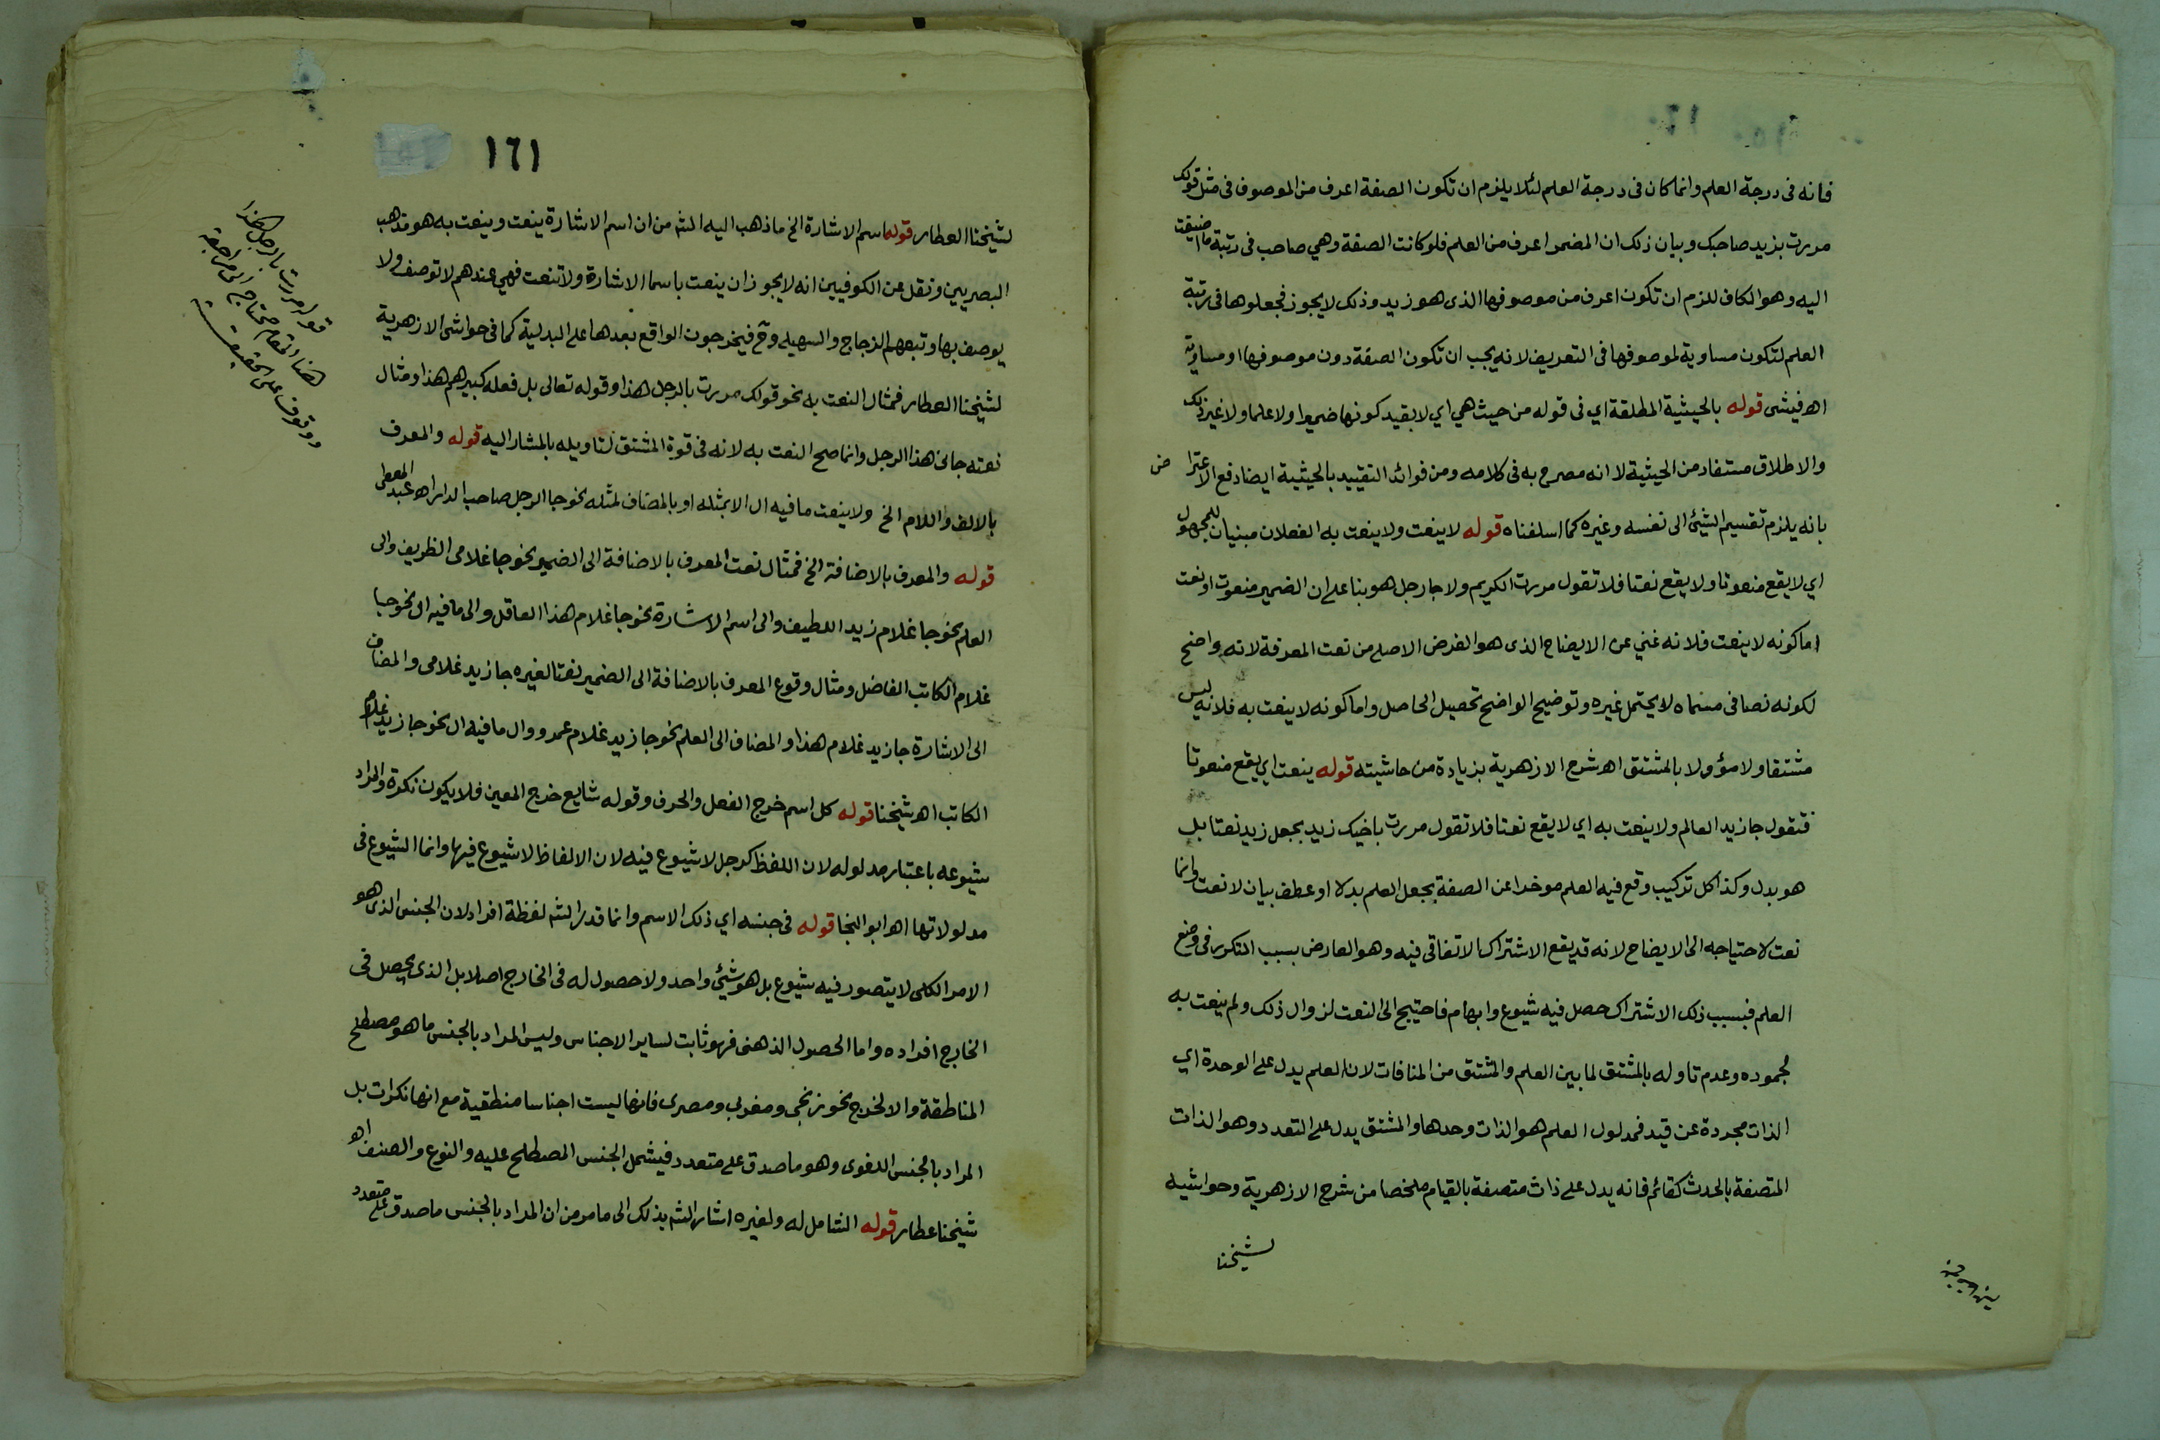 فانه فى درجة العلم وانما كان فى درجة العلم لئلا يلزم ان تكون الصفة اعرف من الموصوف فى مثل قولك
مررت بزيد صاحبك وبيان ذلك ان المضمر اعرف من العلم فلو كانت الصفة وهي صاحب فى رتبة ما اضيفت
اليه وهو الكاف للزم ان تكون اعرف من موصوفها الذى هو زيد وذلك لا يجوز فجعلوها فى رتبة
العلم لتكون مساوية لموصوفها فى التعريف لانه يجب ان تكون الصفة دون موصوفها او مساوية
اه فيشى قوله بالحيثية المطلقة اي فى قوله من حيث هي اي لا بقيد كونها ضميرا ولا علما ولا غير ذلك
والاطلاق مستفاد من الحيثية لا انه مصرح به فى كلامه ومن فوائد التقييد بالحيثية ايضا دفع الاعتراض
بانه يلزم تقسيم الشيئ الى نفسه وغيره كما اسلفناه قوله لا ينعت ولا ينعت به الفعلان مبنيان للمجهول
اي لا يقع منعوتا ولا يقع نعتا فلا تقول مررت الكريم ولا جا رجل هو بنا على ان الضمير منعوت او نعت
اما كونه لا ينعت فلانه غني عن الايضاح الذى هو الغرض الاصلى من نعت المعرفة لانه واضح
لكونه نصا فى مسماه لا يحتمل غيره وتوضيح الواضح تحصيل الحاصل واما كونه لا ينعت به فلانه ليس
مشتقا ولا مؤولا بالمشتق اه شرح الازهرية بزيادة من حاشيته قوله ينعت اي يقع منعوتا
فتقول جا زيد العالم ولا ينعت به اي لا يقع نعتا فلا تقول مررت باخيك زيد بجعل زيد نعتا بل
هو بدل وكذا كل تركيب وقع فيه العلم موخرا عن الصفة بجعل العلم بدلا او عطف بيان لا نعت وانما
نعت لاحتياجه الى الايضاح لانه قد يقع الاشتراك الاتفاقى فيه وهو العارض بسبب التكرير فى وضع
العلم فبسبب ذلك الاشتراك حصل فيه شيوع وابهام فاحتيج الى النعت لزوال ذلك ولم ينعت به
لجموده وعدم تاوله بالمشتق لما بين العلم والمشتق من المنافات لان العلم يدل على الوحدة اي
الذات مجردة عن قيد فمدلول العلم هو الذات وحدها والمشتق يدل على التعدد وهو الذات
المتصفة بالحدث كقائم فانه يدل على ذات متصفة بالقيام ملخصا من شرح الازهرية وحواشيه
لشيخنا
١٦١
لشيخنا العطار قوله اسم الاشارة الخ ماذهب اليه الشم من ان اسم الاشارة ينعت وينعت به هو مذهب
البصريين ونقل عن الكوفيين انه لا يجوز ان ينعت باسما الاشارة ولا تنعت فهي عندهم لا توصف ولا
يوصف بها وتبعهم الزجاج والسهيلى وح فيخرجون الواقع بعدها على البدلية كما فى حواشى الازهرية
لشيخنا العطار فمثال النعت به نحو قولك مررت بالرجل هذا وقوله تعالى بل فعله كبيرهم هذا ومثال
نعته جانى هذا الرجل وانما صح النعت به لانه فى قوة المشتق لتاويله بالمشار اليه قوله والمعرف
بالالف واللام الخ ولا ينعت ما فيه ال الا بمثله او بالمضاف لمثله نحو جا الرجل صاحب الدار اه عبد المعطى
قوله والمعرف بالاضافة الخ فمثال نعت المعرف بالاضافة الى الضمير نحو جا غلامى الظريف والى
العلم نحو جا غلام زيد اللطيف والى اسم الاشارة نحو جا غلام هذا العاقل والى ما فيه ال نحو جا
غلام الكاتب الفاضل ومثال وقوع المعرف بالاضافة الى الضمير نعتا لغيره جا زيد غلامى والمضاف
الى الاشارة جا زيد غلام هذا والمضاف الى العلم نحو جا زيد غلام عمرو وال ما فيه ال نحو جا زيد غلام
الكاتب اه شيخنا قوله كل اسم خرج الفعل والحرف وقوله شايع خرج المعين فلا يكون نكرة والمراد
شيوعه باعتبار مدلوله لان اللفظ كرجل لا شيوع فيه لان الالفاظ لا شيوع فيها وانما الشيوع فى
مدلولاتها اه ابو النجا قوله فى جنسه اي ذلك الاسم وانما قدر الشم لفظة افراد لان الجنس الذى هو
الامر الكلى لا يتصور فيه شيوع بل هو شيئ واحد ولا حصول له فى الخارج اصلا بل الذى يحصل فى
الخارج افراده واما الحصول الذهنى فهو ثابت لساير الاجناس وليس المراد بالجنس ما هو مصطلح
المناطقة والا لخرج نحو زنجى ومغربى ومصرى فانها ليست اجناسا منطقية مع انها نكرات بل
المراد بالجنس اللغوى وهو ما صدق على متعدد فيشمل الجنس المصطلح عليه والنوع والصنف اه
شيخنا عطار قوله الشامل له ولغيره اشار الشم بذلك الى ما مر من ان المراد بالجنس ما صدق على متعدد
قوله مررت بالرجل هذا
هذا المقام محتاج الى مراجعة
ووقوف على الحقيقة